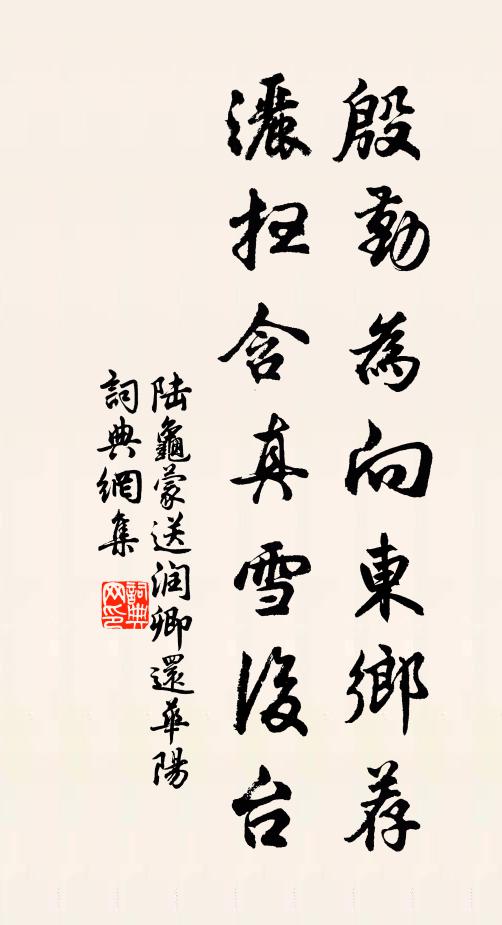 殷勤為向東鄉荐
灑掃含真雪後台
陆龜蒙送润卿還華陽
詞典網集
詞典网印